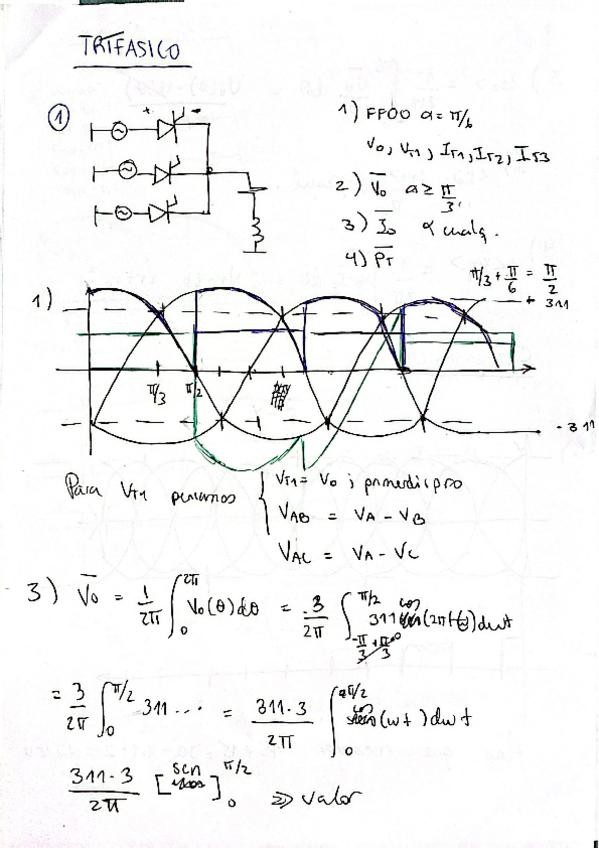 TRIFASICO
①
+ -
1) FFOO α = π/6
Vo, VT1, IT1, IT2, IT3
2) V̅o α ≥ π/3.
3) I̅o α cualq.
4) P̅T
π/3 + π/6 = π/2
1)
+ 311
π/3 π/2
- 311
Para VT1 pensamos { VT1 = Vo ;
VAB = VA - VB
VAC = VA - VC
3) V̅o = 1/2π ∫₀^2π Vo(θ)dθ = 3/2π ∫^π/2 311 cos dwt
= 3/2π ∫₀^π/2 311 ... = 311·3/2π ∫₀^π/2 cos(wt) dwt
311·3/2π [sen]₀^π/2 ⇒ valor